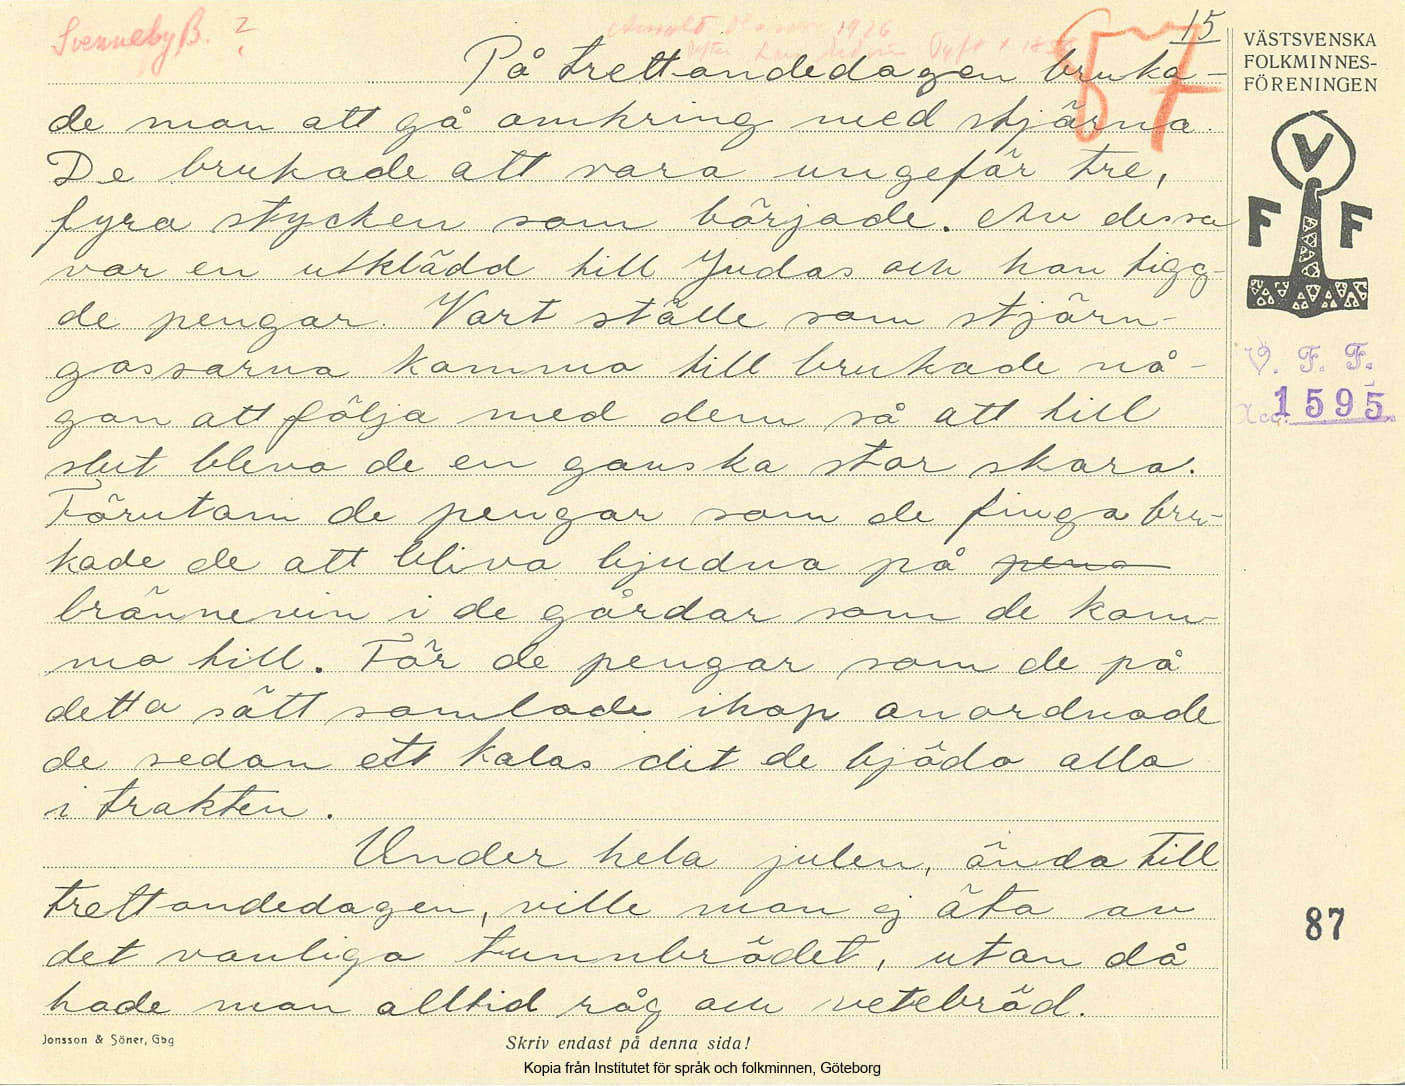 Svenneby B. ?
1926
15
87
VÄSTSVENSKA
FOLKMINNES-
FÖRENINGEN
V
F F
V. F. F.
Acc. 1595.
På trettondedagen bruka-
de man att gå omkring med stjärna.
De brukade att vara ungefär tre,
fyra stycken som började. Av dessa
var en utklädd till Judas och han tigg-
de pengar. Vart ställe som stjärn-
gossarna kommo till brukade nå-
gon att följa med dem så att till
slut blevo de en ganska stor skara.
Förutom de pengar som de finga bru-
kade de att bliva bjudna på peng
brännevin i de gårdar som de kom-
mo till. För de pengar som de på
detta sätt samlade ihop anordnade
de sedan ett kalas dit de bjödo alla
i trakten.
Under hela julen, ända till
trettondedagen, ville man ej äta av
det vanliga tunnbrödet, utan då
hade man alltid råg och vetebröd.
87
Jonsson & Söner, Gbg
Skriv endast på denna sida!
Kopia från Institutet för språk och folkminnen, Göteborg